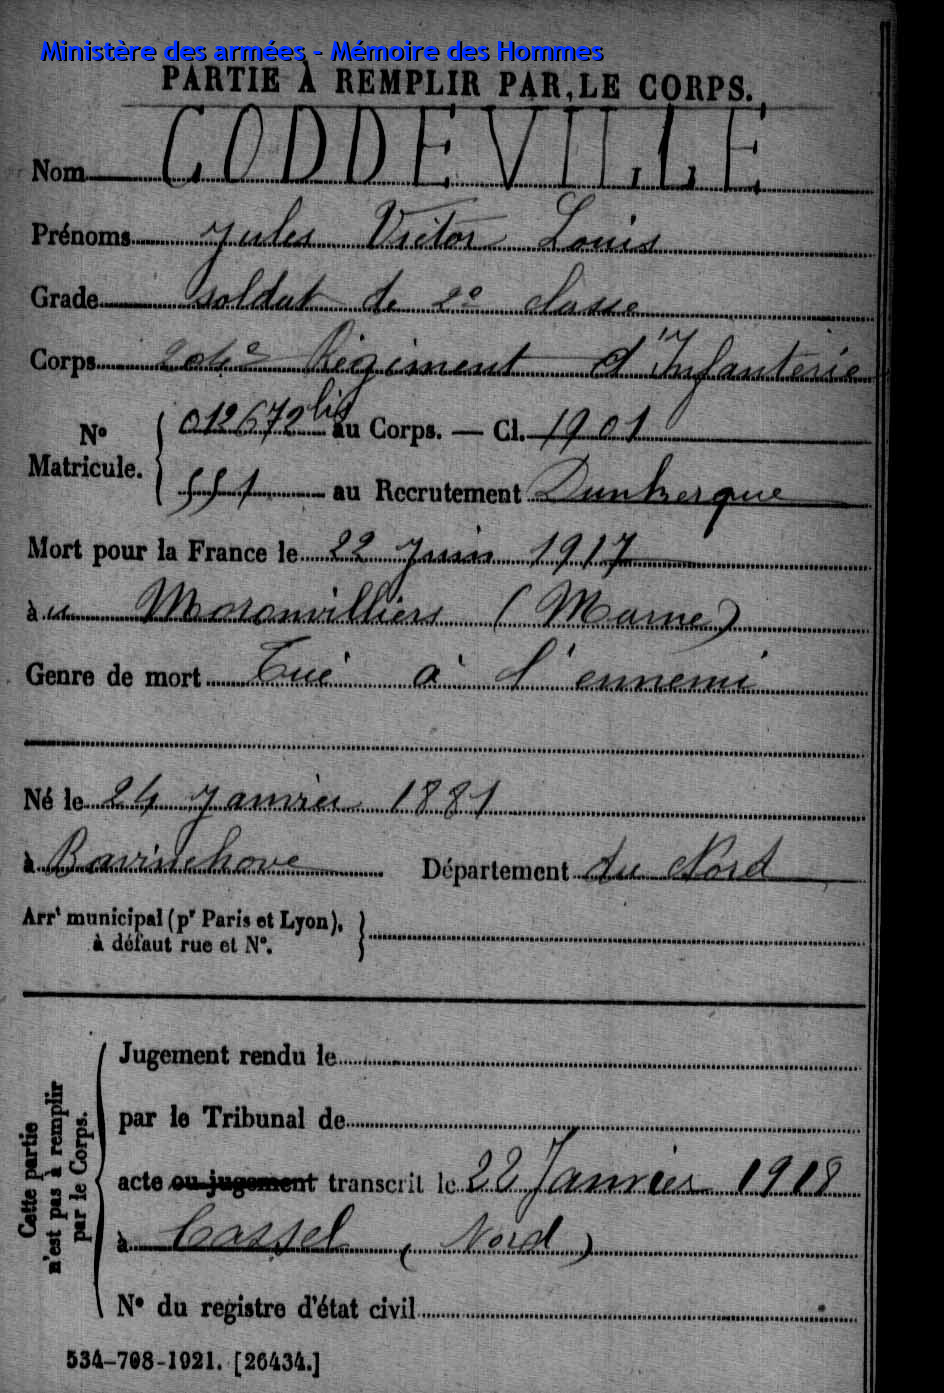 Ministère des armées - Mémoire des Hommes
PARTIE À REMPLIR PAR LE CORPS.
Nom CODDEVILLE
Prénoms Jules Victor Louis
Grade soldat de 2e classe
Corps 204e Régiment d'Infanterie
N° Matricule. { 012672 bis au Corps. — Cl. 1901
551 au Recrutement Dunkerque
Mort pour la France le 22 Juin 1917
à u Moronvilliers (Marne)
Genre de mort Tué à l'ennemi
Né le 24 Janvier 1881
à Bavinchove Département du Nord
Arrt municipal (pr Paris et Lyon),
à défaut rue et N°.
Cette partie n'est pas à remplir par le Corps.
Jugement rendu le
par le Tribunal de
acte ou jugement transcrit le 22 Janvier 1918
à Cassel (Nord)
N° du registre d'état civil
534-708-1921. [26434.]